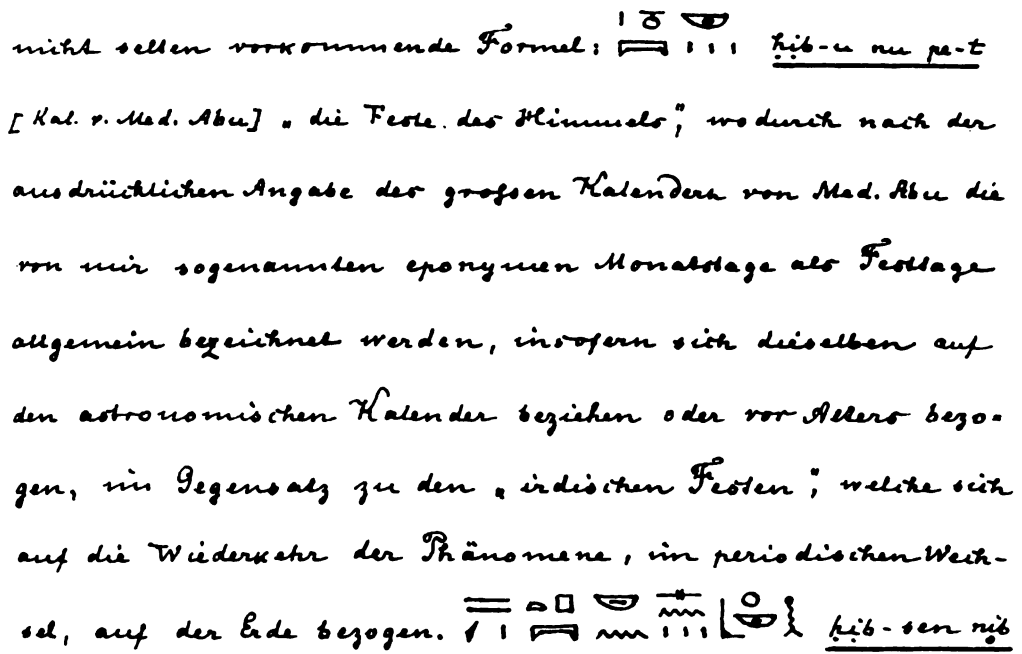 nicht selten vorkommende Formel: ḥib-u nu pe-t
[Kal. v. Med. Abu] „die Feste des Himmels“, wodurch nach der
ausdrücklichen Angabe des grofsen Kalenders von Med. Abu die
von mir sogenannten eponymen Monatstage als Festtage
allgemein bezeichnet werden, insofern sich dieselben auf
den astronomischen Kalender beziehen oder vor Alters bezo=
gen, im Gegensatz zu den „irdischen Festen“, welche sich
auf die Wiederkehr der Phänomene, im periodischen Wech-
sel, auf der Erde bezogen. ḥib-sen nib